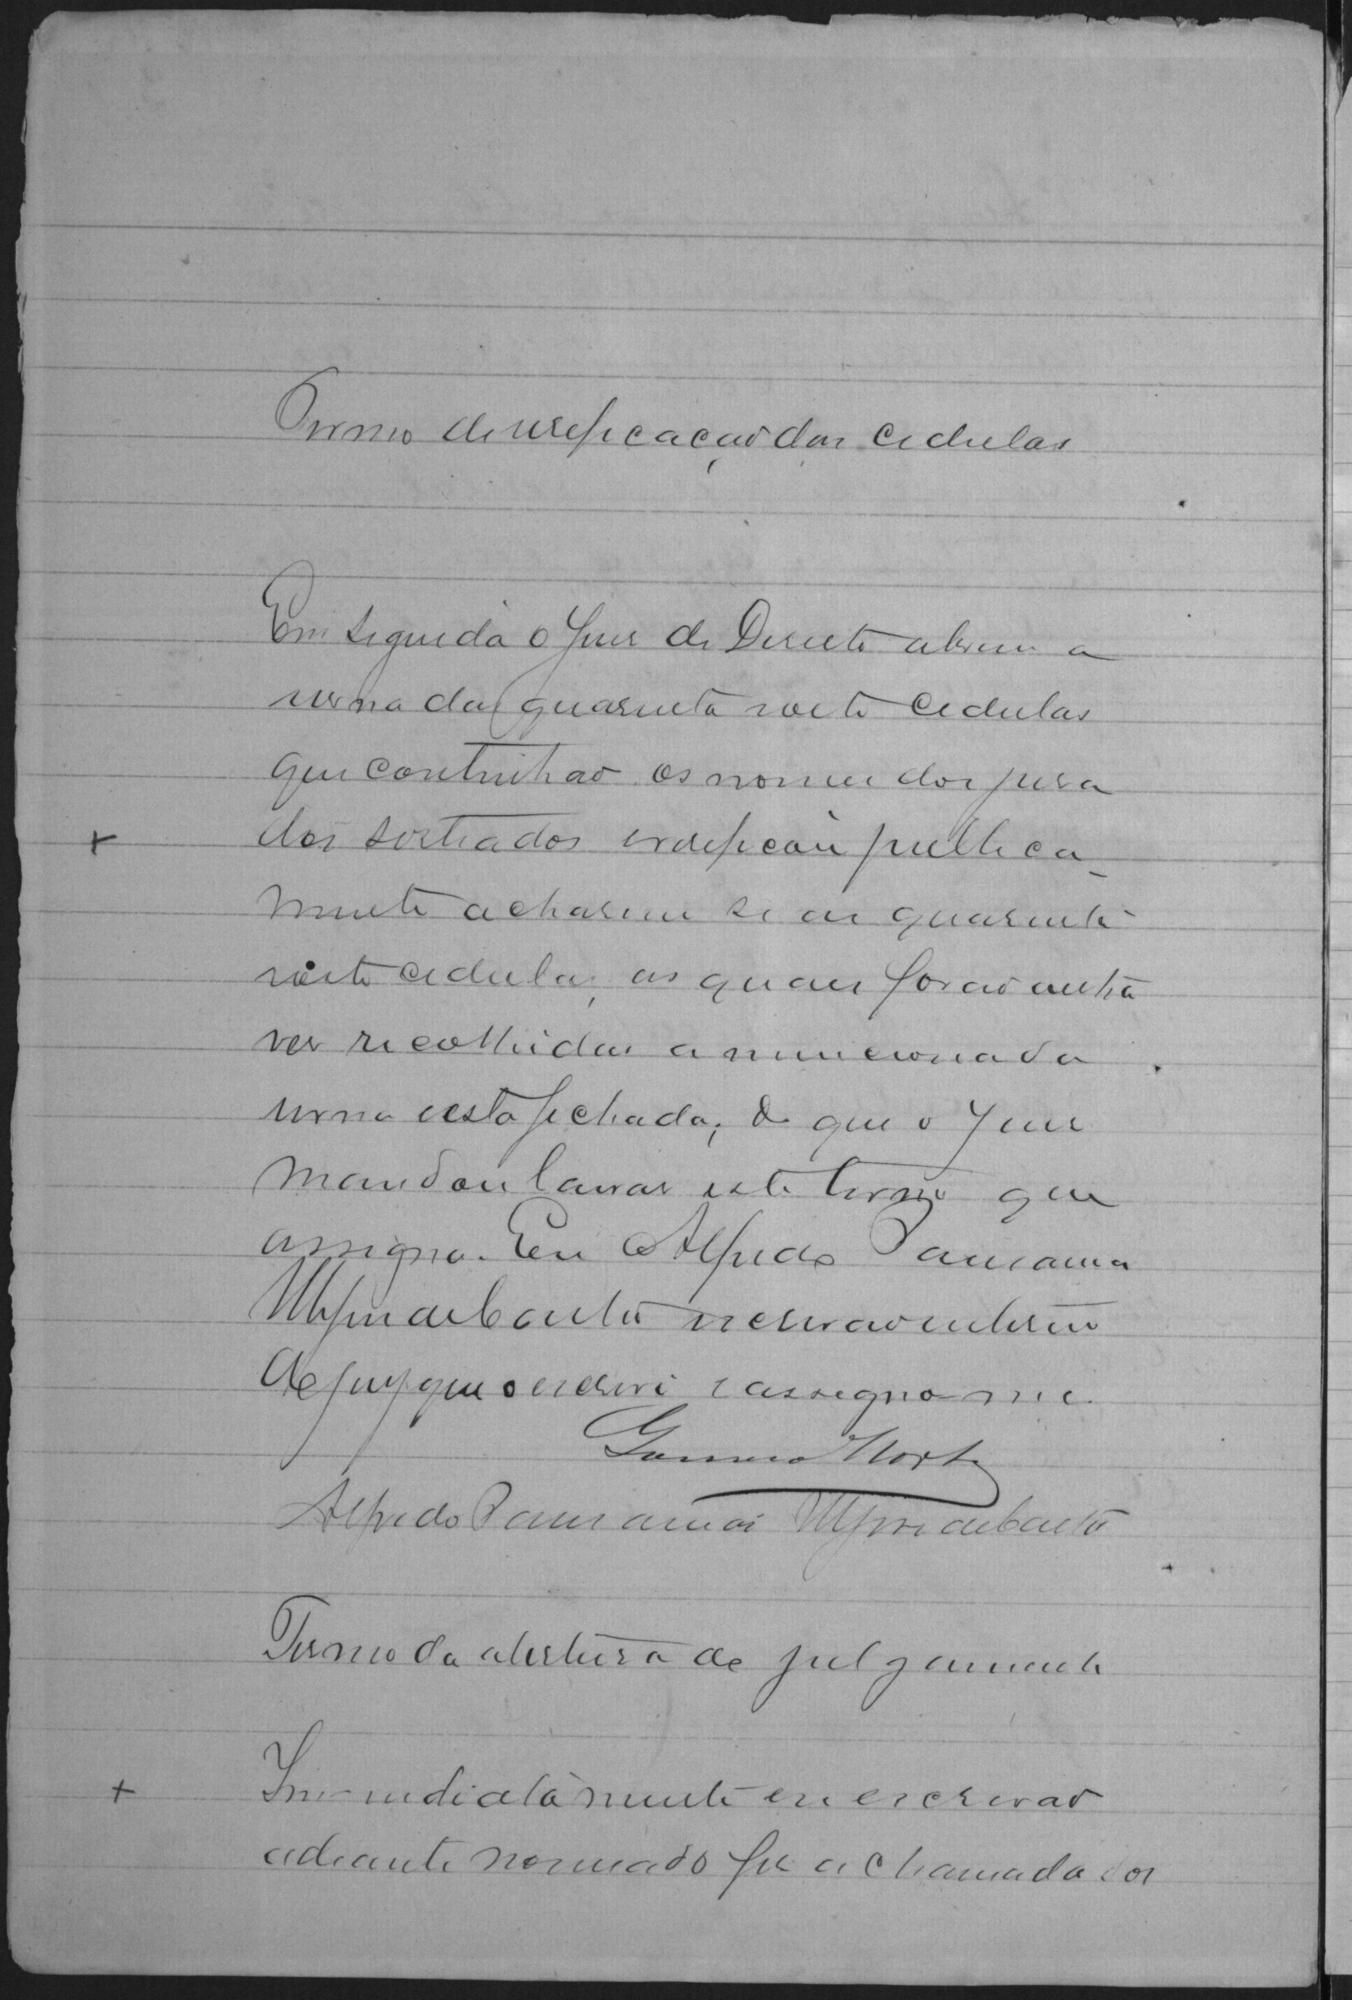 Termo de verificação das cedulas
Em seguida o Juis de Direito abriu a
urna das quarenta oito cedulas
que continhão os nomes dos jura
dos sorteados verificou publica_
mente acharem se as quarenta
oito cedulas, as quais forão outra
ves recolhidas a mencionada
urna e esta fechada; do que o Juis
mandou lavrar este termo que
assigna. Eu Alfredo
escrivão interino
do jury que o escrevi e assigno-me.
Alfredo
Termo da abertura de julgamento
Immediatamente eu escrivão
adiante nomeado fis a chamada dos